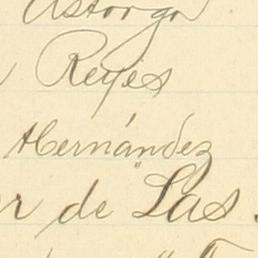 Astorga
Reyes
Hernández
r de "Las